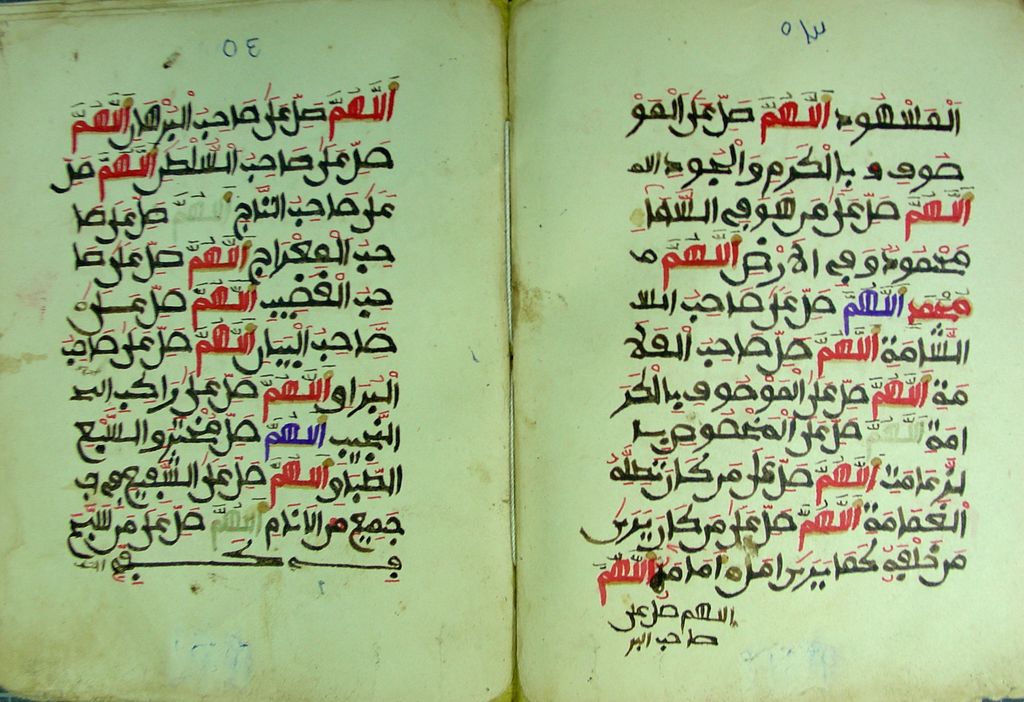 المشهود اللهم صل على المو
صوف بالكرم والجود
اللهم صل على من هو في السما
محمود وفي الارض اللهم
اللهم صل على صاحب
الشامة اللهم صل على صاحب العلا
مة اللهم صل على الموصوف بالكر
امة اللهم صل على المخصوص با
لزعامت اللهم صل على من كان تظله
الغمامة اللهم صل على من كان يرى
من خلفه كما يرى من امامه اللهم
اللهم صل على
صاحب البر
اللهم صل على صاحب البرهان اللهم
صل على صاحب السلطن اللهم صل
على صاحب التاج اللهم صل على صا
حب المعراج اللهم صل على صا
حب القضيب اللهم صل على
صاحب البيان اللهم صل على صاحب
البراو اللهم صل على راكب
النجيب اللهم صل مخترو السبع
الطباو اللهم صل على الشفيع في
جميع من الانام اللهم صل على من سبح
في كفه